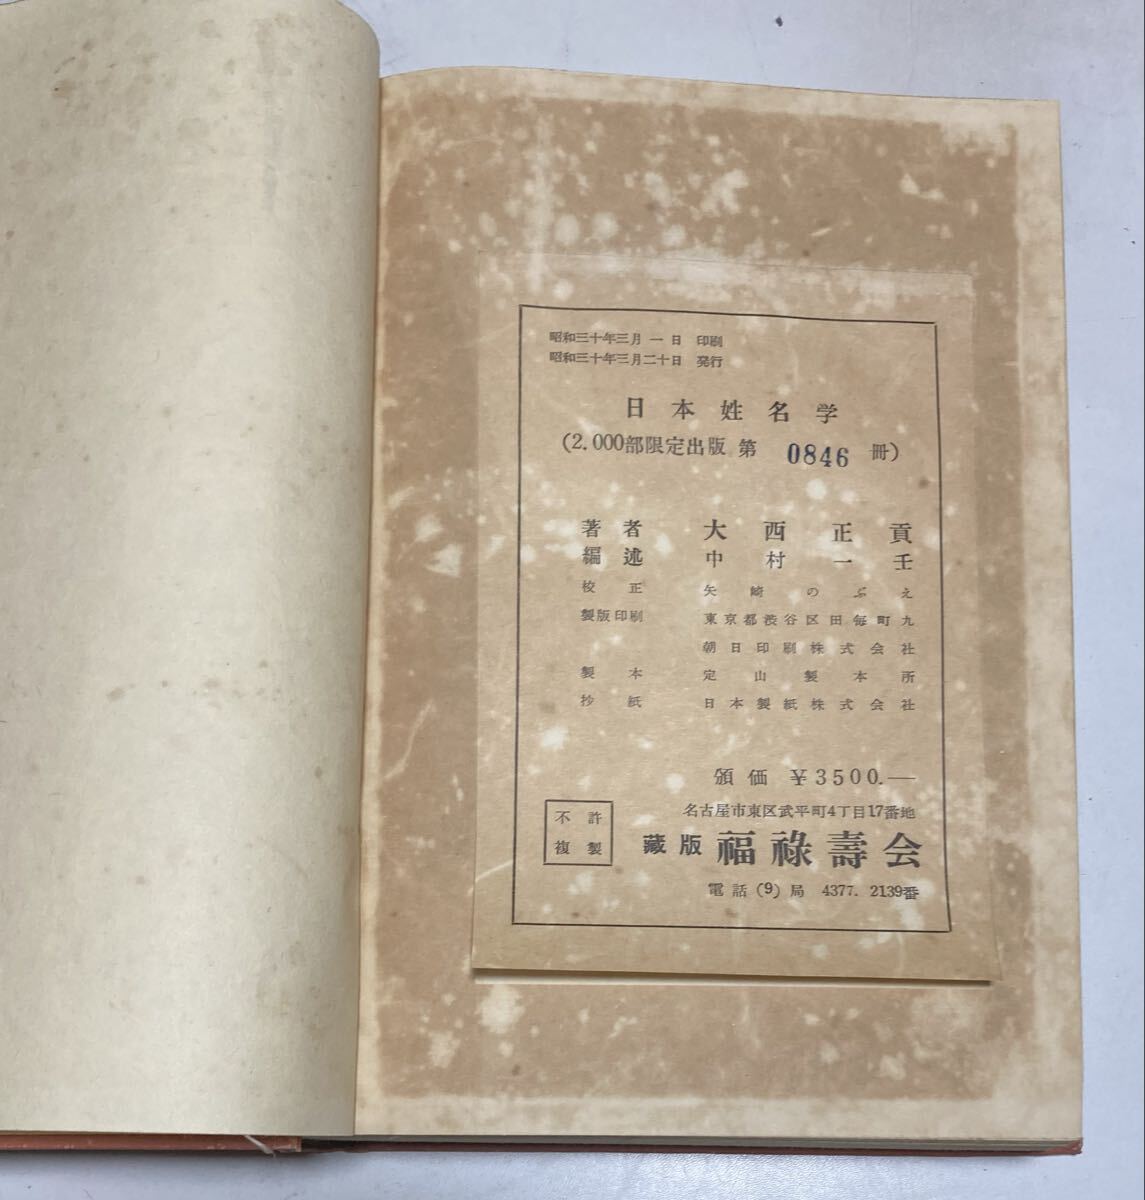 昭和三十年三月一日 印刷
昭和三十年三月二十日 発行
日本姓名学
(2.000部限定出版 第 0846 冊)
著者 大西正貢
編述 中村一壬
校正 矢崎のぶえ
製版印刷 東京都渋谷区田毎町九
朝日印刷株式会社
製本 定山製本所
抄紙 日本製紙株式会社
頒価 ¥3500.—
名古屋市東区武平町4丁目17番地
不許
複製
蔵版 福祿壽会
電話(9)局 4377. 2139番